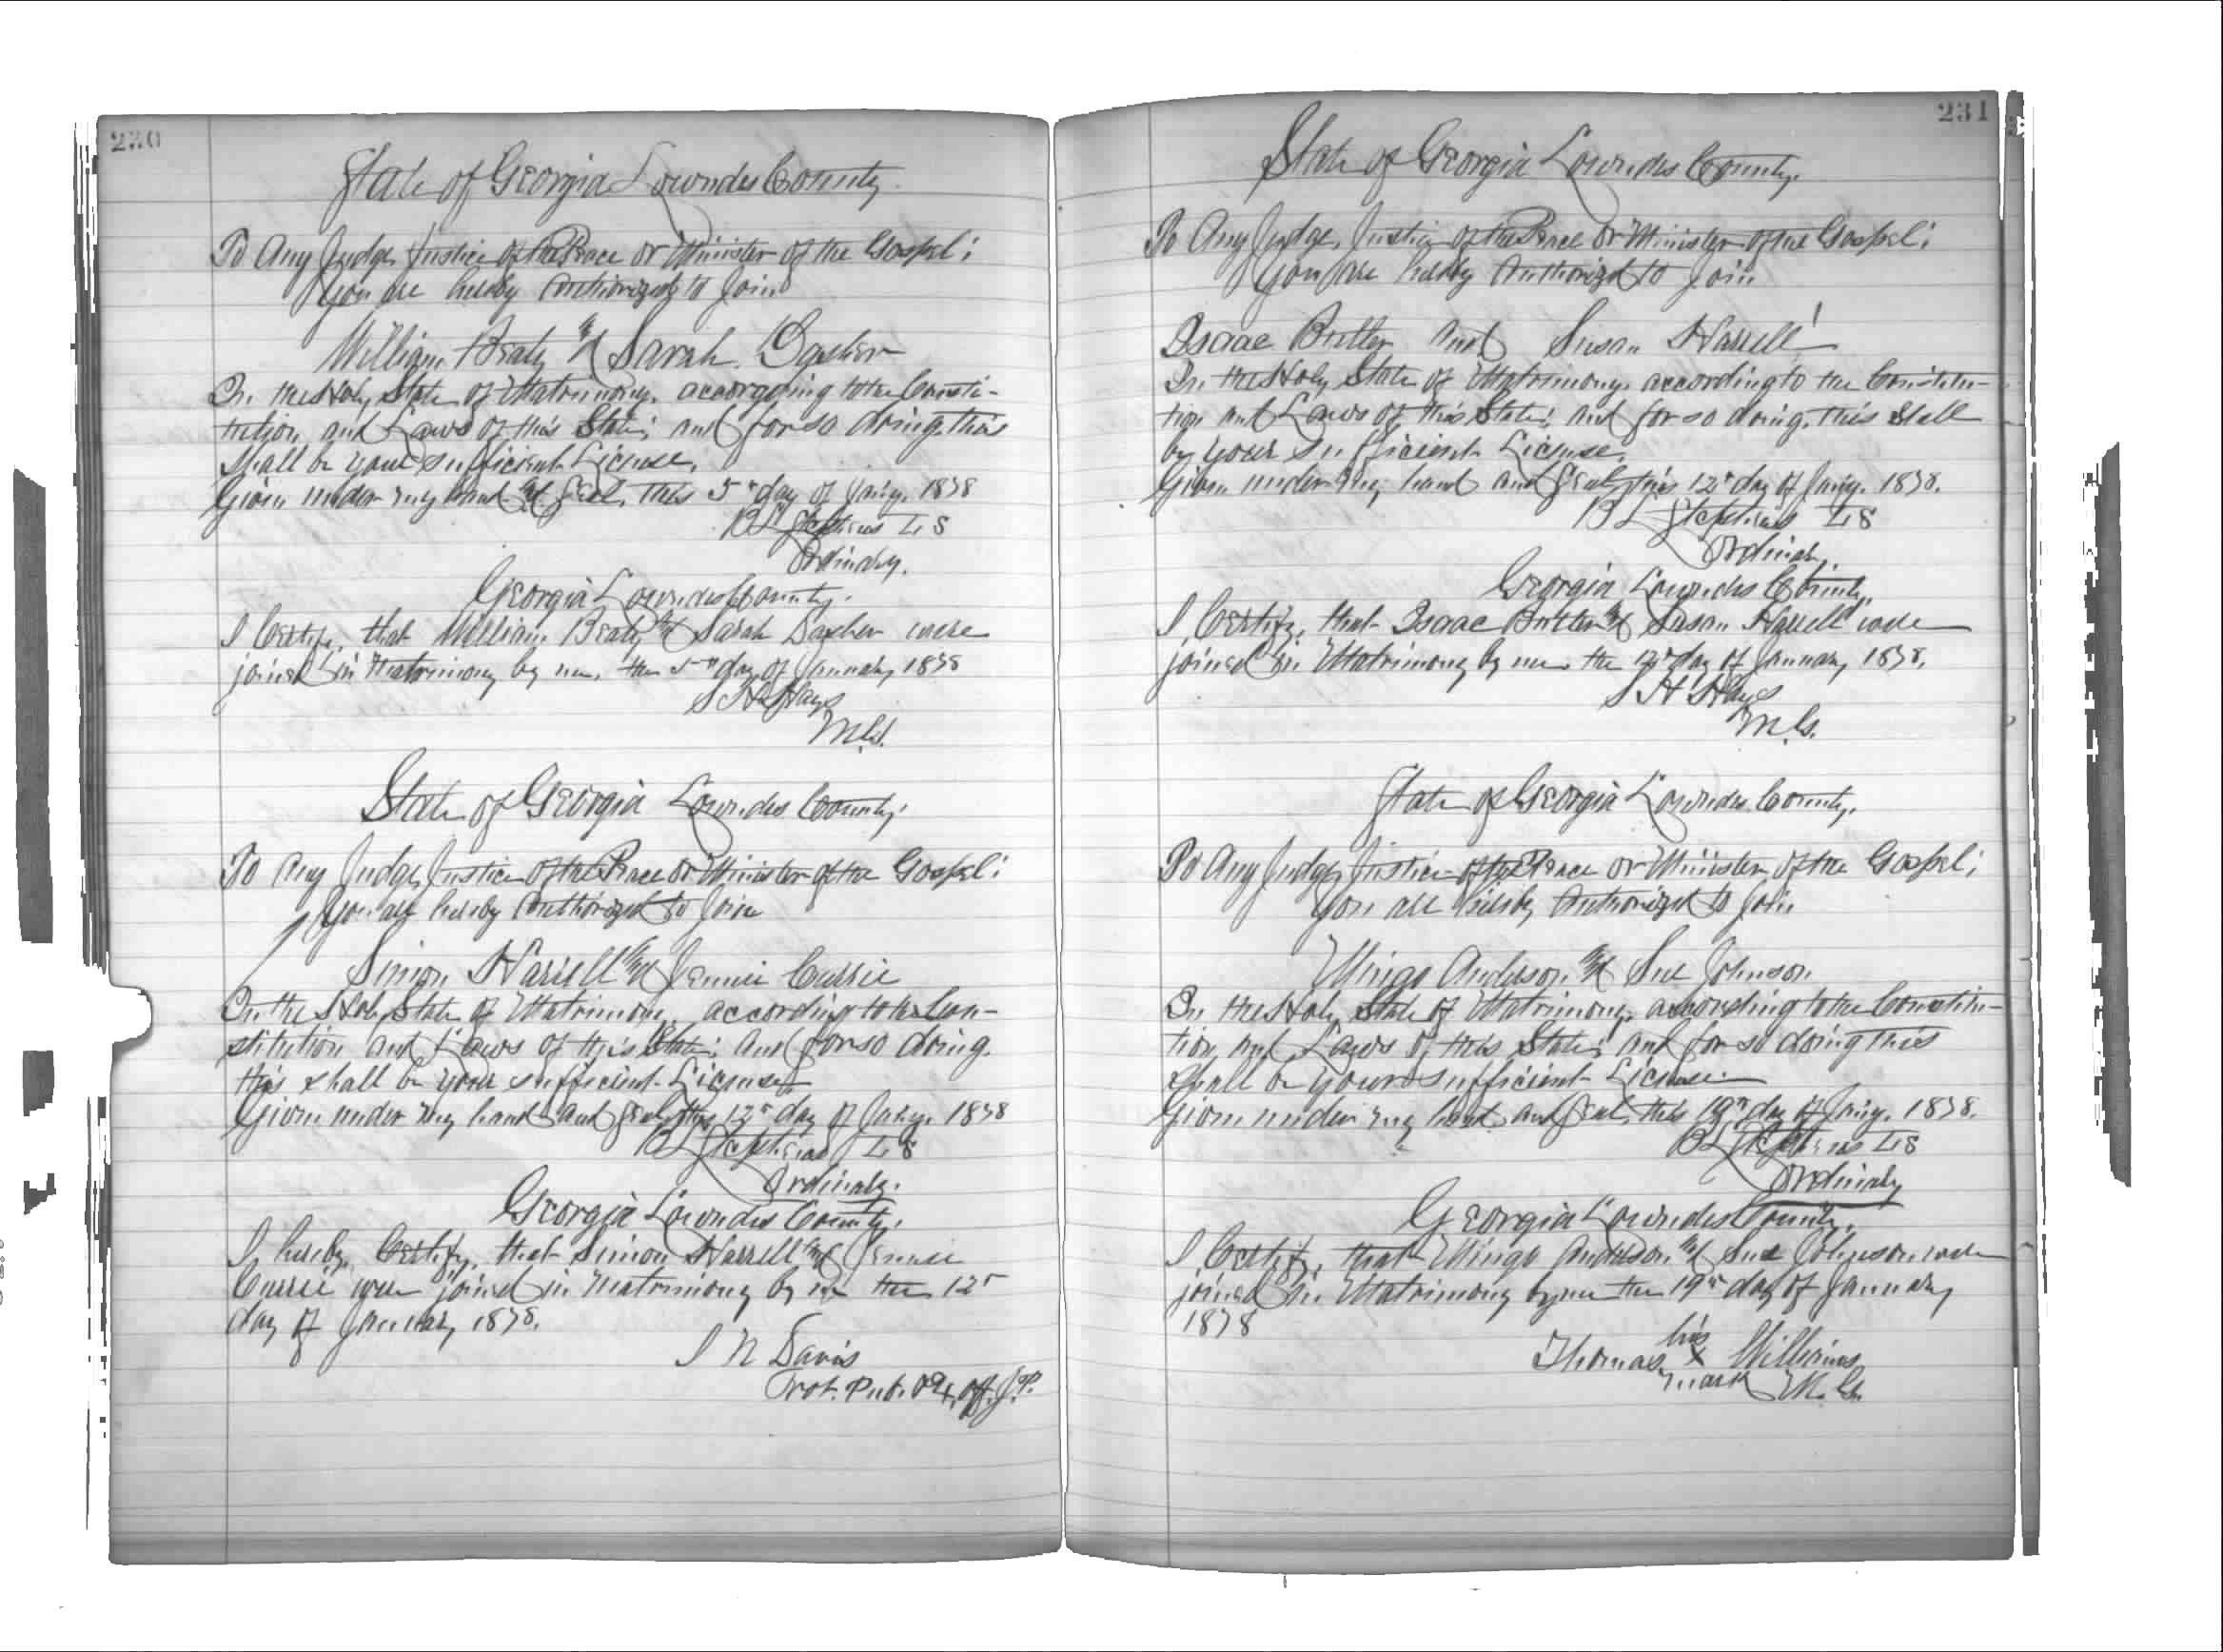 230
State of Georgia Lowndes County.
To Any Judge, Justice of the Peace or Minister of the Gospel:
You are hereby Authorized to Join
William Beaty & Sarah
In the Holy State of Matrimony, according to the Consti-
tution and Laws of this State; and for so doing, this
shall be your sufficient License.
Given under my hand & Seal, this 5th day of Jany. 1878
B L Stephens L S
Ordinary.
Georgia Lowndes County.
I Certify, that William Beaty & Sarah were
joined in Matrimony by me, the 5th day of January 1878
S H Hays
M.G.
State of Georgia Lowndes County;
To Any Judge, Justice of the Peace or Minister of the Gospel:
You are hereby Authorized to Join
Simon Harrell & Jennie Currie
In the Holy State of Matrimony, according to the Con-
stitution and Laws of this State; and for so doing
this shall be your sufficient License
Given under my hand and Seal, this 12th day of Jany. 1878
B L Stephens L S
Ordinary.
Georgia Lowndes County.
I hereby Certify, that Simon Harrell & Jennie
Currie were joined in Matrimony by me the 12th
day of January 1878.
Davis
Not. Pub. & Ex. Off. J.P.
231
State of Georgia Lowndes County.
To Any Judge, Justice of the Peace or Minister of the Gospel:
You are hereby Authorized to Join
Isaac Butler and Susan Harrell
In the Holy State of Matrimony, according to the Constitu-
tion and Laws of this State; and for so doing, this shall
be your sufficient License.
Given under my hand and Seal, this 12th day of Jany. 1878.
B L Stephens L S
Ordinary.
Georgia Lowndes County.
I Certify, that Isaac Butler & Susan Harrell were
joined in Matrimony by me the 12th day of January 1878.
S H Hays
M.G.
State of Georgia Lowndes County.
To Any Judge, Justice of the Peace or Minister of the Gospel;
You are hereby Authorized to Join
Mingo Anderson & Sue Johnson
In the Holy State of Matrimony, according to the Constitu-
tion and Laws of this State; and for so doing this
shall be your sufficient License.
Given under my hand and Seal, this 19th day of Jany. 1878.
B L Stephens L S
Ordinary
Georgia Lowndes County.
I Certify, that Mingo Anderson & Sue Johnson were
joined in Matrimony by me the 19th day of January
1878
his
Thomas x Williams
mark M.G.